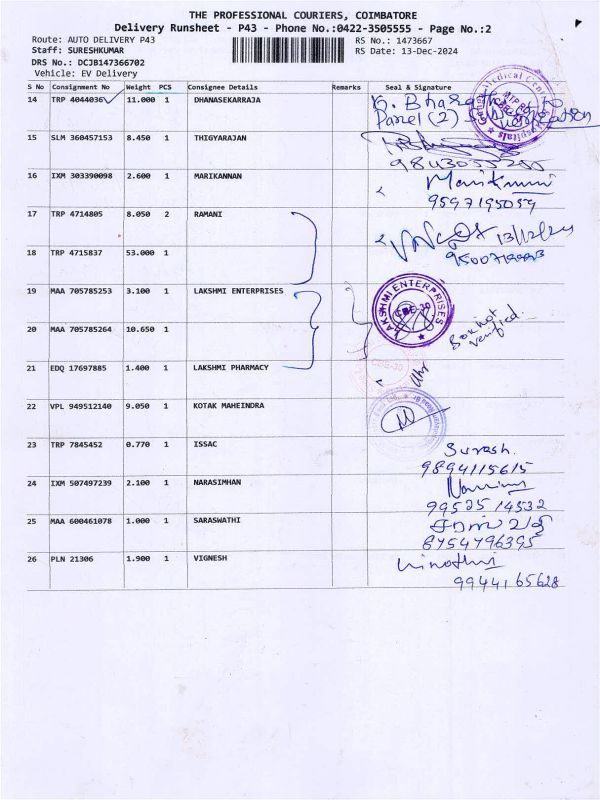 THE PROFESSIONAL COURIERS, COIMBATORE
Delivery Runsheet - P43 - Phone No.:0422-3505555 - Page No.:2
Route: AUTO DELIVERY P43
RS No.: 1473667
Staff: SURESHKUMAR
RS Date: 13-Dec-2024
DRS No.: DCJB147366702
Vehicle: EV Delivery
S No Consignment No Weight PCS Consignee Details Remarks Seal & Signature
14 TRP 4044036 11.000 1 DHANASEKARRAJA
15 SLM 360457153 8.450 1 THIGYARAJAN
16 IXM 303390098 2.600 1 MARIKANNAN
9597195059
17 TRP 4714805 8.050 2 RAMANI
13/12/24
18 TRP 4715837 53.000 1
19 MAA 705785253 3.100 1 LAKSHMI ENTERPRISES
LAKSHMI ENTERPRISES
CBE-30
Box not
verified.
20 MAA 705785264 10.650 1
21 EDQ 17697885 1.400 1 LAKSHMI PHARMACY
22 VPL 949512140 9.050 1 KOTAK MAHEINDRA
23 TRP 7845452 0.770 1 ISSAC
Suresh.
9894115615
24 IXM 507497239 2.100 1 NARASIMHAN
9952514532
25 MAA 600461078 1.000 1 SARASWATHI
8754796395
26 PLN 21306 1.900 1 VIGNESH
9944165628